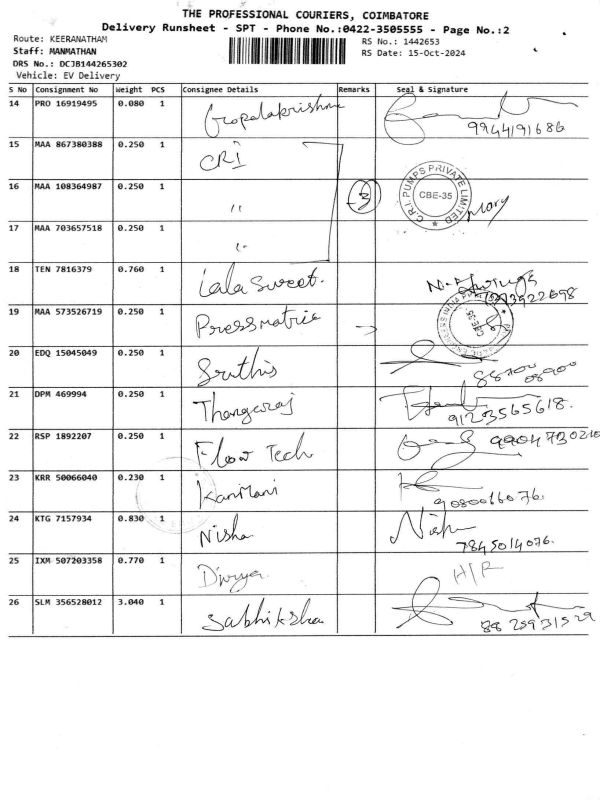 THE PROFESSIONAL COURIERS, COIMBATORE
Delivery Runsheet - SPT - Phone No.:0422-3505555 - Page No.:2
Route: KEERANATHAM
RS No.: 1442653
Staff: MANMATHAN
RS Date: 15-Oct-2024
DRS No.: DCJB144265302
Vehicle: EV Delivery
S No Consignment No Weight PCS Consignee Details Remarks Seal & Signature
14 PRO 16919495 0.080 1 Gopalakrishna 9944191686
15 MAA 867380388 0.250 1 CRI
16 MAA 108364987 0.250 1 " 3 C.R.I. PUMPS PRIVATE LIMITED CBE-35 mary
17 MAA 703657518 0.250 1 "
18 TEN 7816379 0.760 1 Lala Sweet.
19 MAA 573526719 0.250 1 Pressmatric CBE-35
20 EDQ 15045049 0.250 1 Sruthis
21 DPM 469994 0.250 1 Thangaraj 9123565618.
22 RSP 1892207 0.250 1 Flow Tech 9904730210
23 KRR 50066040 0.230 1 Kanmani 9080016076.
24 KTG 7157934 0.830 1 Nisha Nisha 7845014076.
25 IXM 507203358 0.770 1 Divya H/R
26 SLM 356528012 3.040 1 Sabhiksha 8825931529